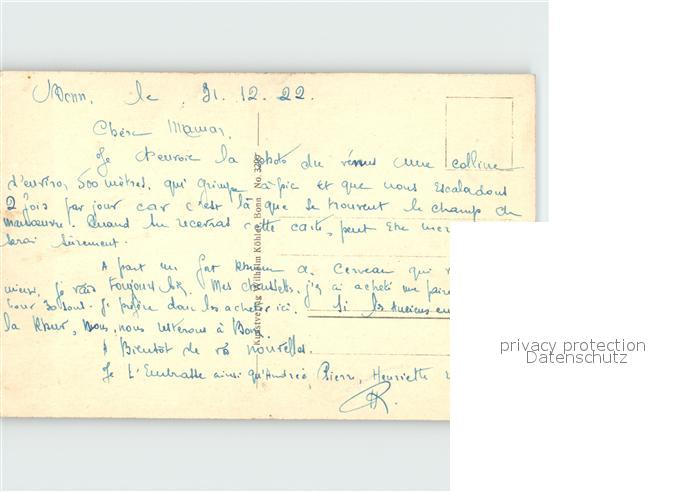 Bonn, le 31.12.22.
Chère Maman,
Je t'envoie la photo du vénus une colline
d'environ 500 mètres, qui grimpe à pic et que nous escaladons
2 fois par jour car c'est là que se trouvent le champ de
manœuvre. Quand tu recevras cette carte, peut être
serai sûrement.
A part un fort Rhume de Cerveau qui
mieux, je vais toujours bien. Mes chaussettes, j'y ai acheté une paire
pour 30 sous. Je préfère donc les acheter ici. Si les Anciens
la Rhur, Nous, nous resterons à Bonn.
A Bientôt de vos nouvelles.
Je t'Embrasse ainsi qu'Andrée, Pierre, Henriette
R.
Kunstverlag Wilhelm Köhler, Bonn No. 3297
privacy protection
Datenschutz